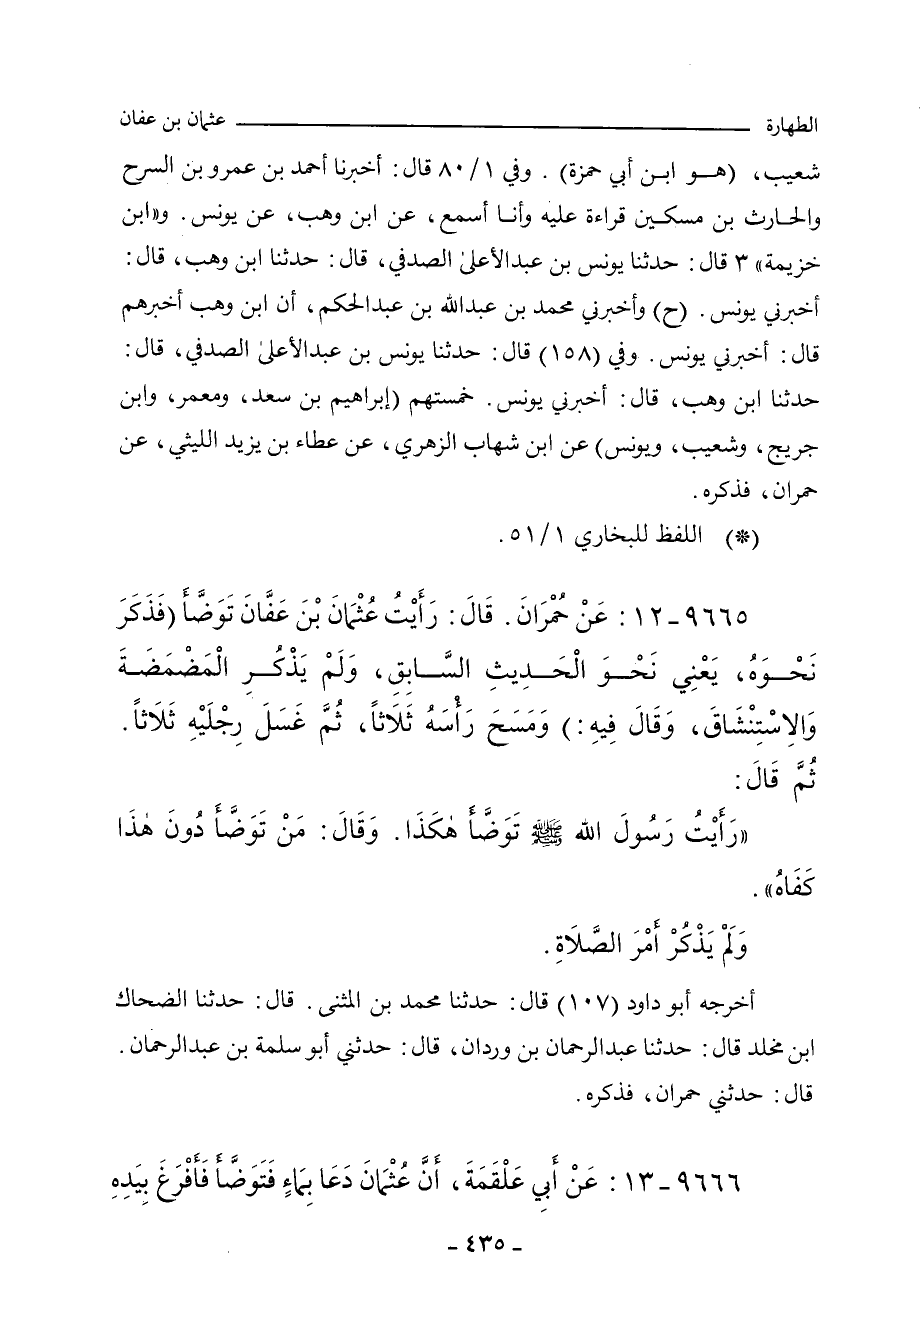 الطهارة ــــــــــــ عثمان بن عفان
شعيب، (هـو ابـن أبي حمزة) . وفي ١/ ٨٠ قال: أخبرنا أحمد بن عمرو بن السرح
والحارث بن مسكين قراءة عليه وأنا أسمع، عن ابن وهب، عن يونس. و«ابن
خزيمة» ٣ قال: حدثنا يونس بن عبدالأعلىٰ الصدفي، قال: حدثنا ابن وهب، قال:
أخبرني يونس. (ح) وأخبرني محمد بن عبدالله بن عبدالحكم، أن ابن وهب أخبرهم
قال: أخبرني يونس. وفي (١٥٨) قال: حدثنا يونس بن عبدالأعلىٰ الصدفي، قال:
حدثنا ابن وهب، قال: أخبرني يونس. خمستهم (إبراهيم بن سعد، ومعمر، وابن
جريج، وشعيب، ويونس) عن ابن شهاب الزهري، عن عطاء بن يزيد الليثي، عن
حمران، فذكره.
(*) اللفظ للبخاري ١/ ٥١.
٩٦٦٥ - ١٢: عَنْ حُمْرَانَ. قَالَ: رَأَيْتُ عُثْمَانَ بْنَ عَفَّانَ تَوَضَّأَ (فَذَكَرَ
نَحْـوَهُ، يَعْنِي نَحْـوَ الْحَـدِيثِ السَّـابِقِ، وَلَمْ يَذْكُـرِ الْمَضْمَضَـةَ
وَالِاسْتِنْشَاقَ، وَقَالَ فِيهِ:) وَمَسَحَ رَأْسَهُ ثَلَاثاً، ثُمَّ غَسَلَ رِجْلَيْهِ ثَلَاثاً.
ثُمَّ قَالَ:
«رَأَيْتُ رَسُولَ الله ﷺ تَوَضَّأَ هٰكَذَا. وَقَالَ: مَنْ تَوَضَّأَ دُونَ هٰذَا
كَفَاهُ».
وَلَمْ يَذْكُرْ أَمْرَ الصَّلَاةِ.
أخرجه أبو داود (١٠٧) قال: حدثنا محمد بن المثنى. قال: حدثنا الضحاك
ابن مخلد قال: حدثنا عبدالرحمان بن وردان، قال: حدثني أبو سلمة بن عبدالرحمان.
قال: حدثني حمران، فذكره.
٩٦٦٦ - ١٣: عَنْ أَبي عَلْقَمَةَ، أَنَّ عُثْمَانَ دَعَا بِمَاءٍ فَتَوَضَّأَ فَأَفْرَغَ بِيَدِهِ
- ٤٣٥ -